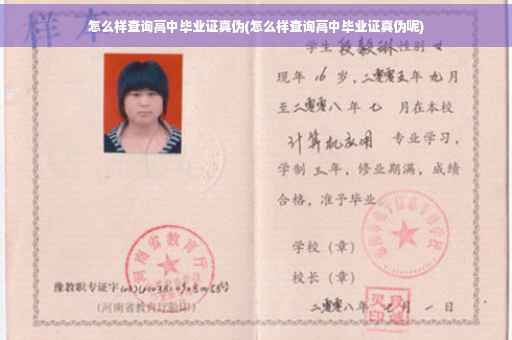 怎么样查询高中毕业证真伪(怎么样查询高中毕业证真伪呢)
样本
学生 段毅琳 性别
现年 16 岁，二零零五年 九月
至二零零八年 七 月在本校
计算机应用 专业学习，
学制 三年，修业期满，成绩
合格，准予毕业
学校（章）
河南省教育厅
校长（章）
豫教职专证字
(河南省教育厅验印)
二零零八年 七月 一日